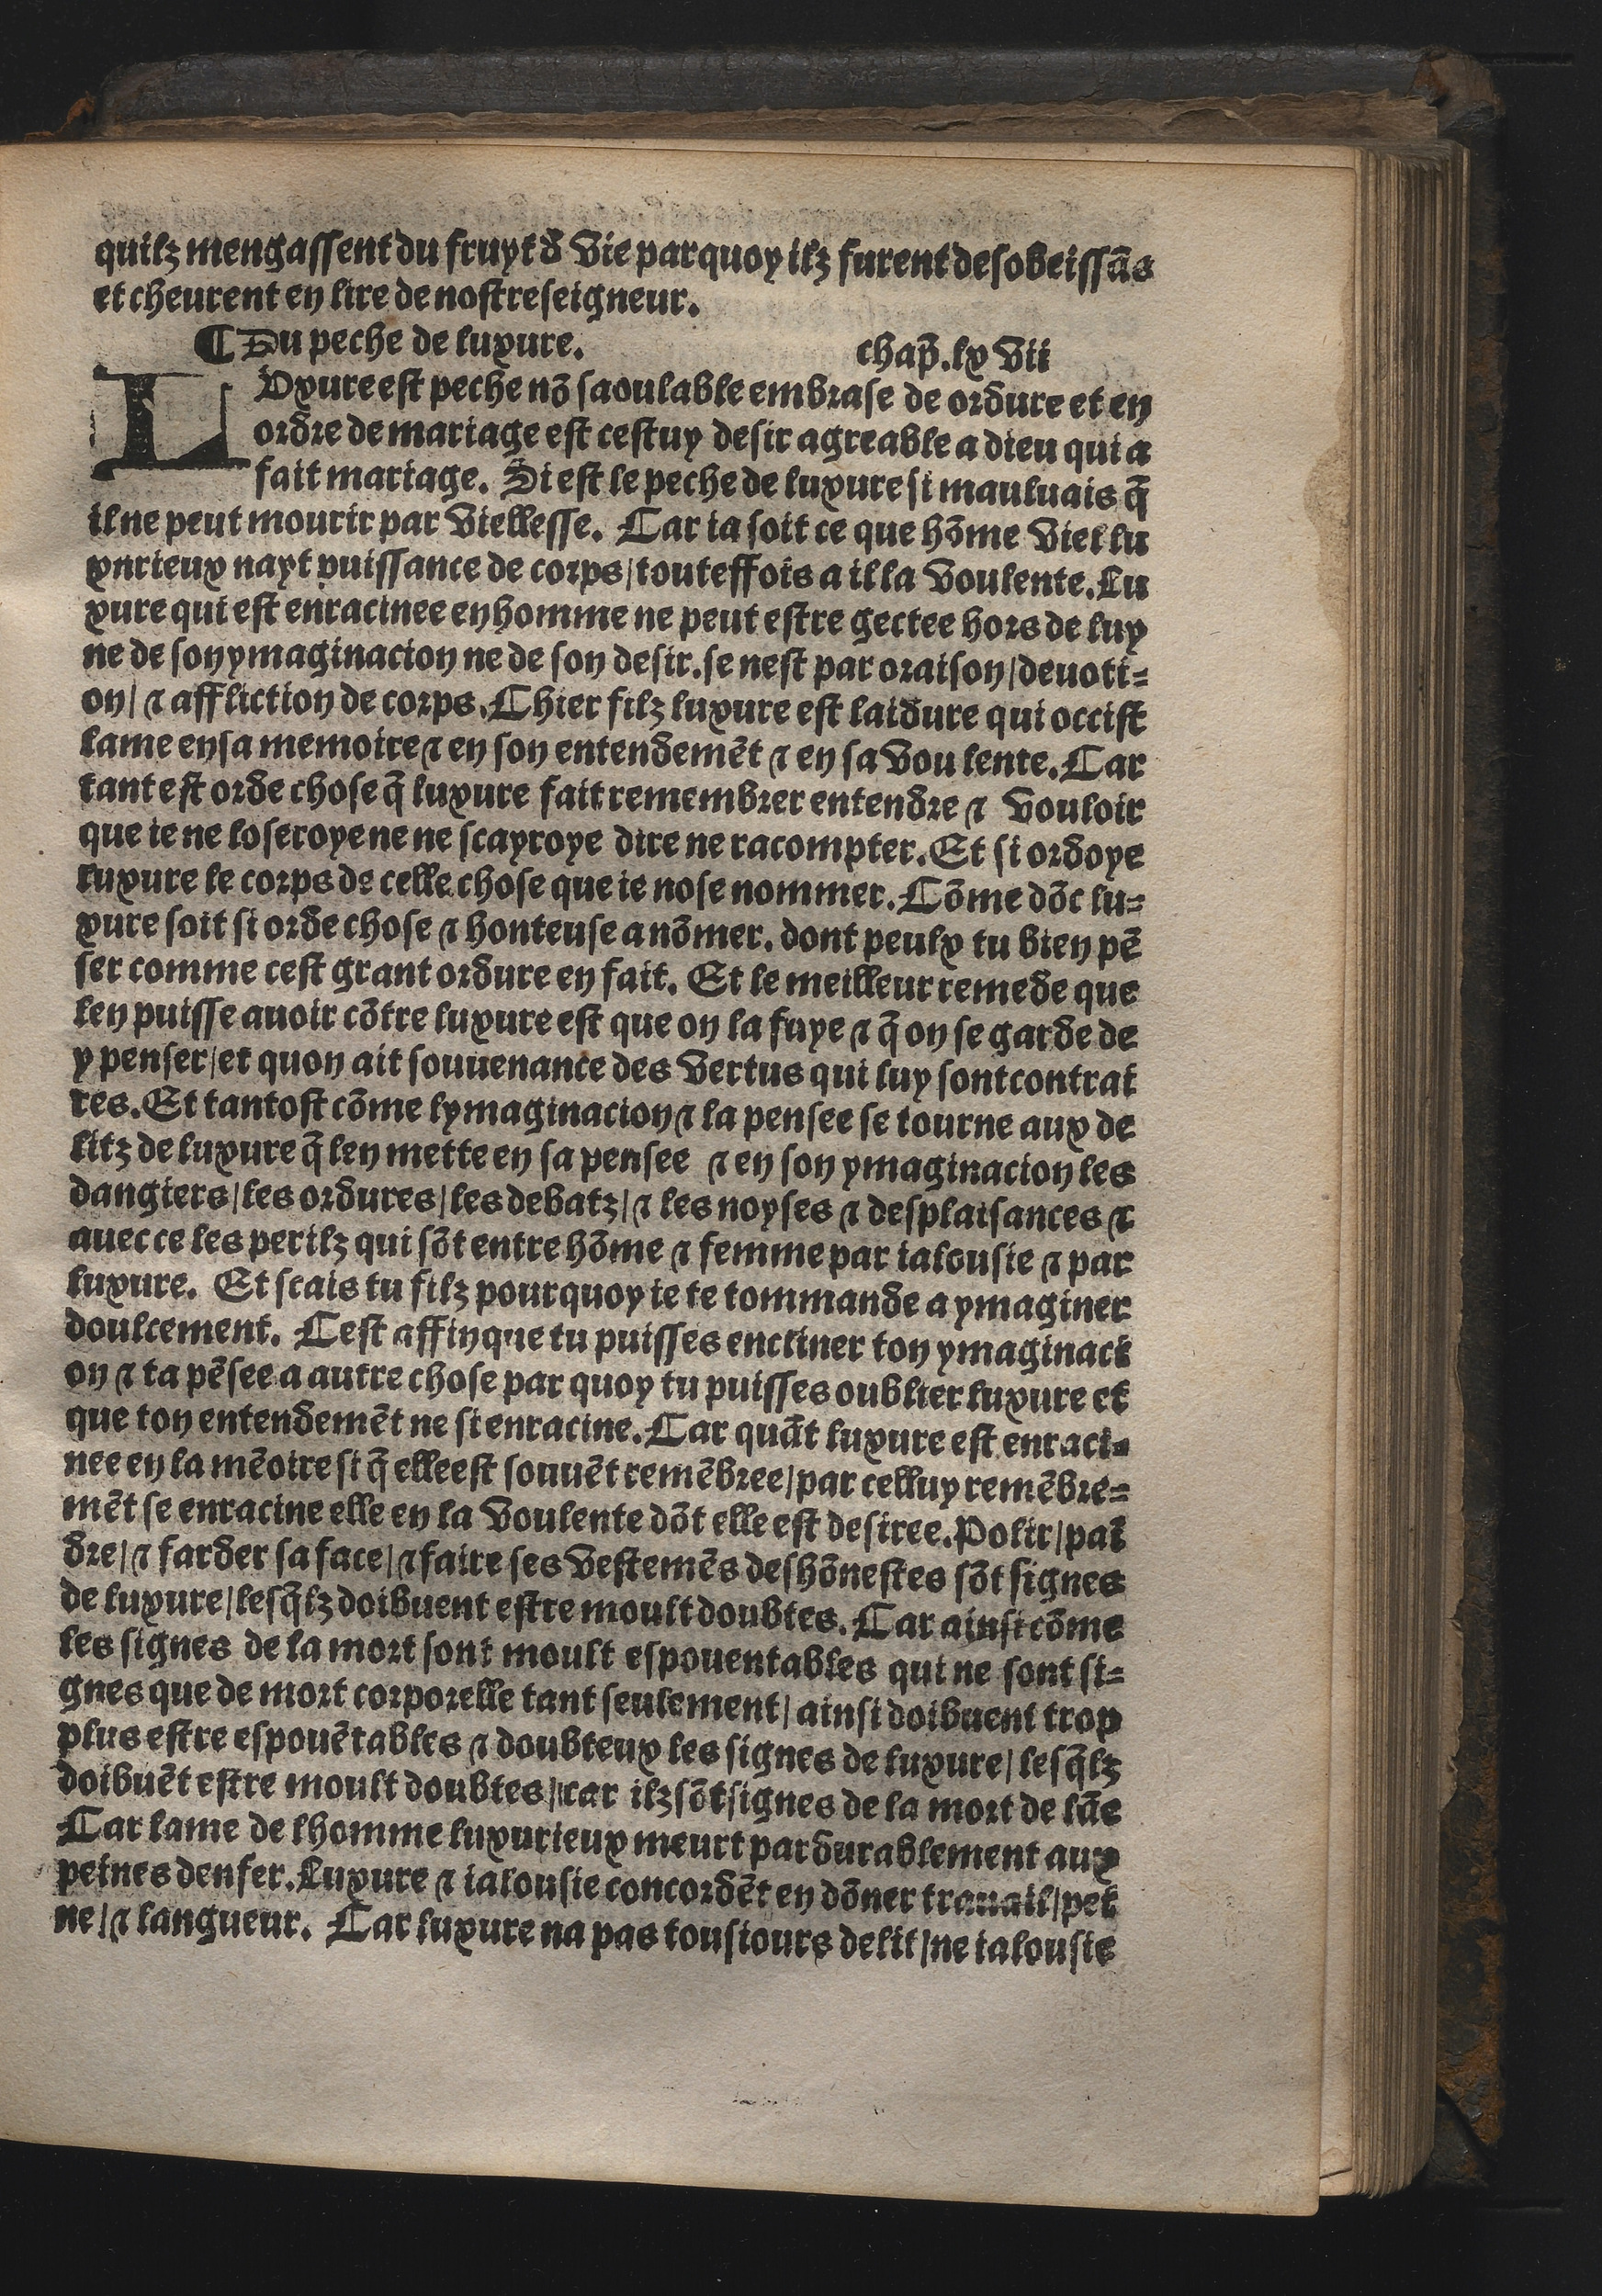 quilz mengassent du fruyt d̄ vie parquoy ilz furent desobeissās
et cheurent en lire de nostreseigneur.
¶ Du peche de luxure. chap̄. lx vii
LVxure est peche nō saoulable embrase de ordure et en
ordre de mariage est cestuy desir agreable a dieu qui a
fait mariage. Si est le peche de luxure si mauluais q̄
il ne peut mourir par viellesse. Car ia soit ce que hōme viel lu
xnrieux nayt puissance de corps/ touteffois a il la voulente. Lu
xure qui est enracinee en homme ne peut estre gectee hors de luy
ne de son ymaginacion ne de son desir. se nest par oraison/ deuoti=
on/ ⁊ affliction de corps. Chier filz luxure est laidure qui occist
lame en sa memoire ⁊ en son entendemēt ⁊ en sa voulente. Car
tant est orde chose q̄ luxure fait remembrer entendre ⁊ vouloir
que ie ne loseroye ne ne scayroye dire ne racompter. Et si ordoye
luxure le corps de celle chose que ie nose nommer. Cōme dōc lu=
xure soit si orde chose ⁊ honteuse a nōmer. dont peulx tu bien pē
ser comme cest grant ordure en fait. Et le meilleur remede que
len puisse auoir cōtre luxure est que on la fuye ⁊ q̄ on se garde de
y penser/ et quon ait souuenance des vertus qui luy sont contrai
res. Et tantost cōme lymaginacion ⁊ la pensee se tourne aux de
litz de luxure q̄ len mette en sa pensee ⁊ en son ymaginacion les
dangiers/ les ordures/ les debatz/ ⁊ les noyses ⁊ desplaisances ⁊
auec ce les perilz qui sōt entre hōme ⁊ femme par ialousie ⁊ par
luxure. Et scais tu filz pourquoy ie te commande a ymaginer
doulcement. Cest affin que tu puisses encliner ton ymaginaci
on ⁊ ta pēsee a autre chose par quoy tu puisses oublier luxure et
que ton entendemēt ne si enracine. Car quāt luxure est enraci=
nee en la mēoire si q̄ elle est souuēt remēbree/ par celluy remēbre=
mēt se enracine elle en la voulente dōt elle est desiree. Polir/ pai
dre/ ⁊ farder sa face/ ⁊ faire ses vestemēs deshōnestes sōt signes
de luxure/ lesq̄lz doibuent estre moult doubtes. Car ainsi cōme
les signes de la mort sont moult espouentables qui ne sont si=
gnes que de mort corporelle tant seulement/ ainsi doibuent trop
plus estre espouētables ⁊ doubteux les signes de luxure/ lesq̄lz
doibuēt estre moult doubtes/ car ilz sōt signes de la mort de lāe
Car lame de lhomme luxurieux meurt pardurablement aux
peines denfer. Luxure ⁊ ialousie concordēt en dōner trauail/ pei
ne/ ⁊ langueur. Car luxure na pas tousiours delit/ ne ialousie